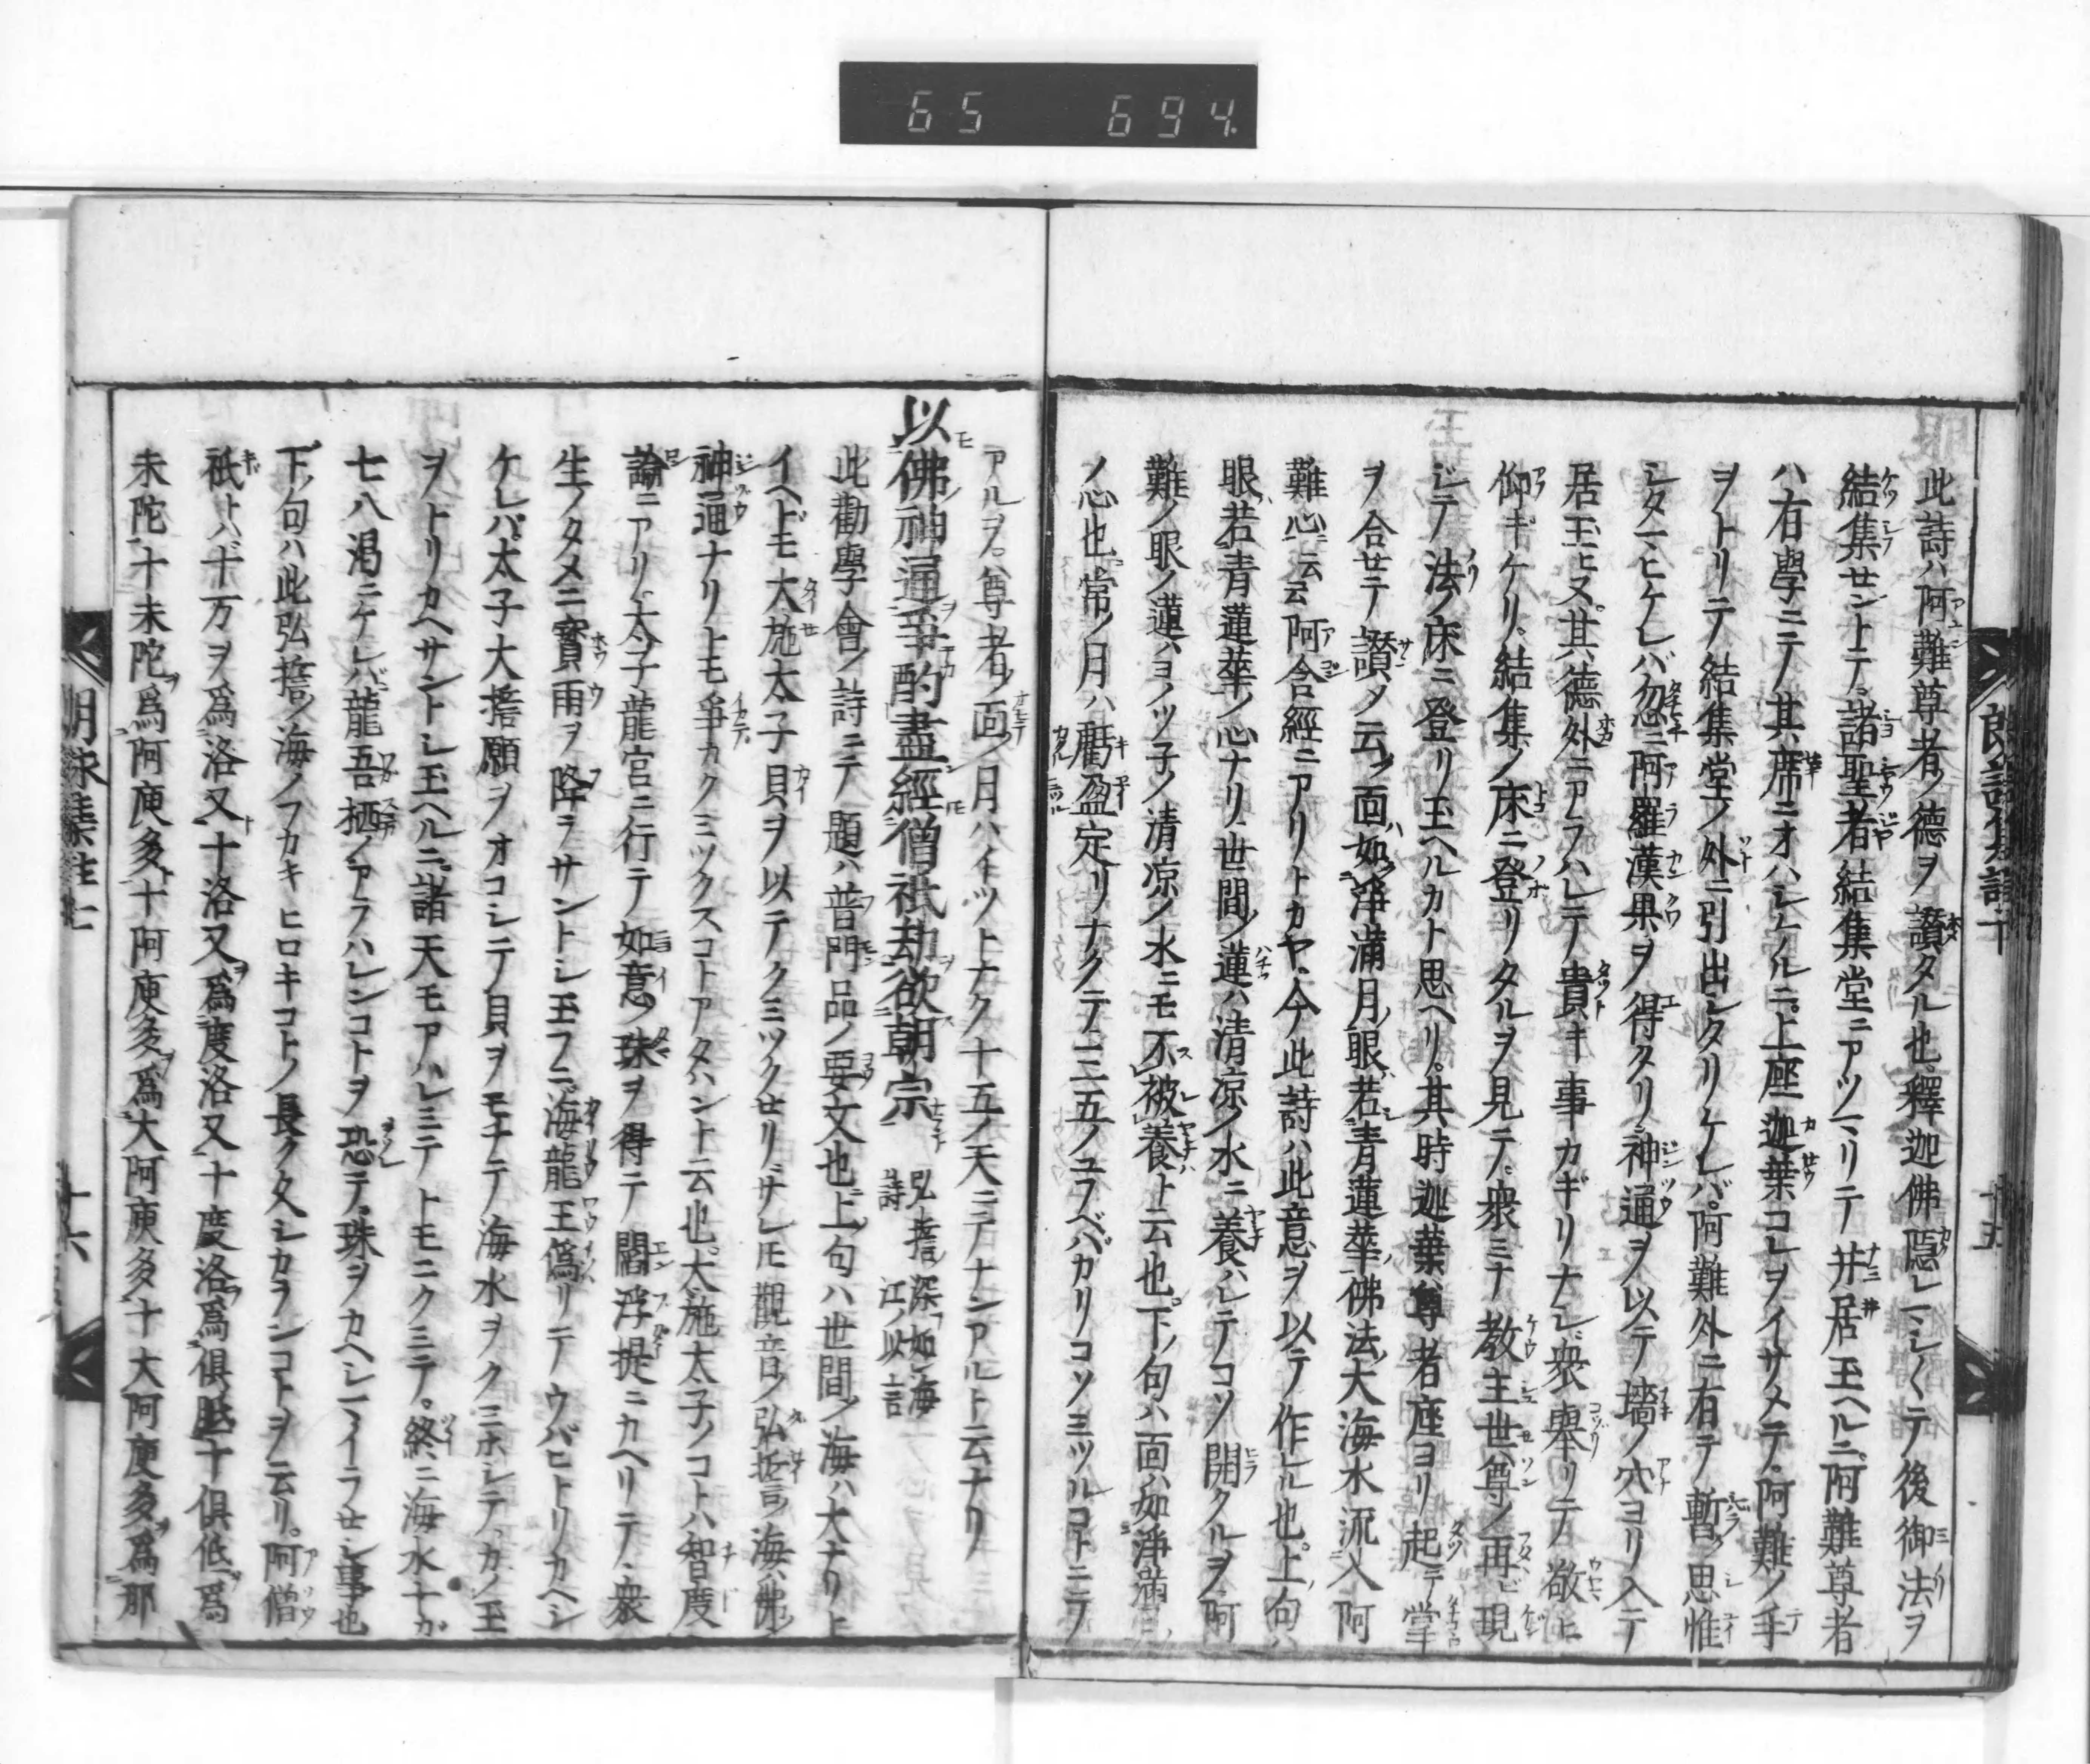 65 694
此詩ハ阿難尊者ノ德ヲ讃タル也釋迦佛隠レマシ〱テ後御法ヲ
結集セントテ諸聖者結集堂ニアツマリテ并居玉ヘルニ阿難尊者
ハ有學ニテ其席ニオハシケルニ上座迦葉コレヲイサメテ阿難ノ手
ヲトリテ結集堂ノ外ニ引出シタリケレバ阿難外ニ有テ暫ク思惟
シタマヒケレバ忽ニ阿羅漢果ヲ得タリ神通ヲ以テ墻ノ穴ヨリ入テ
居玉ヒヌ其德外ニアラハレテ貴キ事カギリナシ衆舉リテ敬ヒ
仰ギケリ結集ノ床ニ登リタルヲ見テ衆ミナ教主世尊ノ再ビ現
ジテ法ノ床ニ登リ玉ヘルカト思ヘリ其時迦葉尊者座ヨリ起テ掌
ヲ合セテ讃メ云ク面如淨滿月眼若青蓮華佛法大海水流入阿
難心云云阿含經ニアリトカヤ今此詩ハ此意ヲ以テ作レル也上句ハ
眼若青蓮華ノ心ナリ世間ノ蓮ハ清凉ノ水ニ養ハレテコソ開クルヲ阿
難ノ眼ノ蓮ハヨノツ子ノ清凉ノ水ニモ不被養ト云也下句ハ面ハ如淨滿月
ノ心也常ノ月ハ虧盈定リナクテ三五ノユフベバカリコソミツルコトニテ
アルヲ尊者ノ面ノ月ハイツトナク十五ノ天ニテナンアルト云ナリ
以佛神通爭酌盡經僧祇劫欲朝宗 弘誓深如海詩 江以言
此勸學會ノ詩ニテ題ハ普門品ノ要文也上句ハ世間ノ海ハ大ナリト
イヘドモ大施太子貝ヲ以テクミツクセリサレモ觀音ノ弘誓ノ海ハ佛ノ
神通ナリトモ爭カクミツクスコトアタハント云也太施太子ノコトハ智度
論ニアリ太子龍宮ニ行テ如意ノ珠ヲ得テ閻浮提ニカヘリテ衆
生ノタメニ寳雨ヲ降ラサントシ玉フニ海龍王僞リテウバヒトリカヘシ
ケレバ太子大誓願ヲオコシテ貝ヲモチテ海水ヲクミホシテカノ玉
ヲトリカヘサントシ玉ヘルニ諸天モアハレミテトモニクミテ終ニ海水十ガ
七八渇ニケレバ龍吾栖ノアラハレンコトヲ恐テ珠ヲカヘシマイラセシ事也
下句ハ此弘誓ノ海ノフカキヒロキコトノ長ク久シカランコトヲ云リ阿僧
祇トハ十万ヲ爲洛叉十洛叉爲度洛叉十度洛爲俱胝十俱低爲
未陀十未陀爲阿庾多十阿庾多爲大阿庾多十大阿庾多爲那